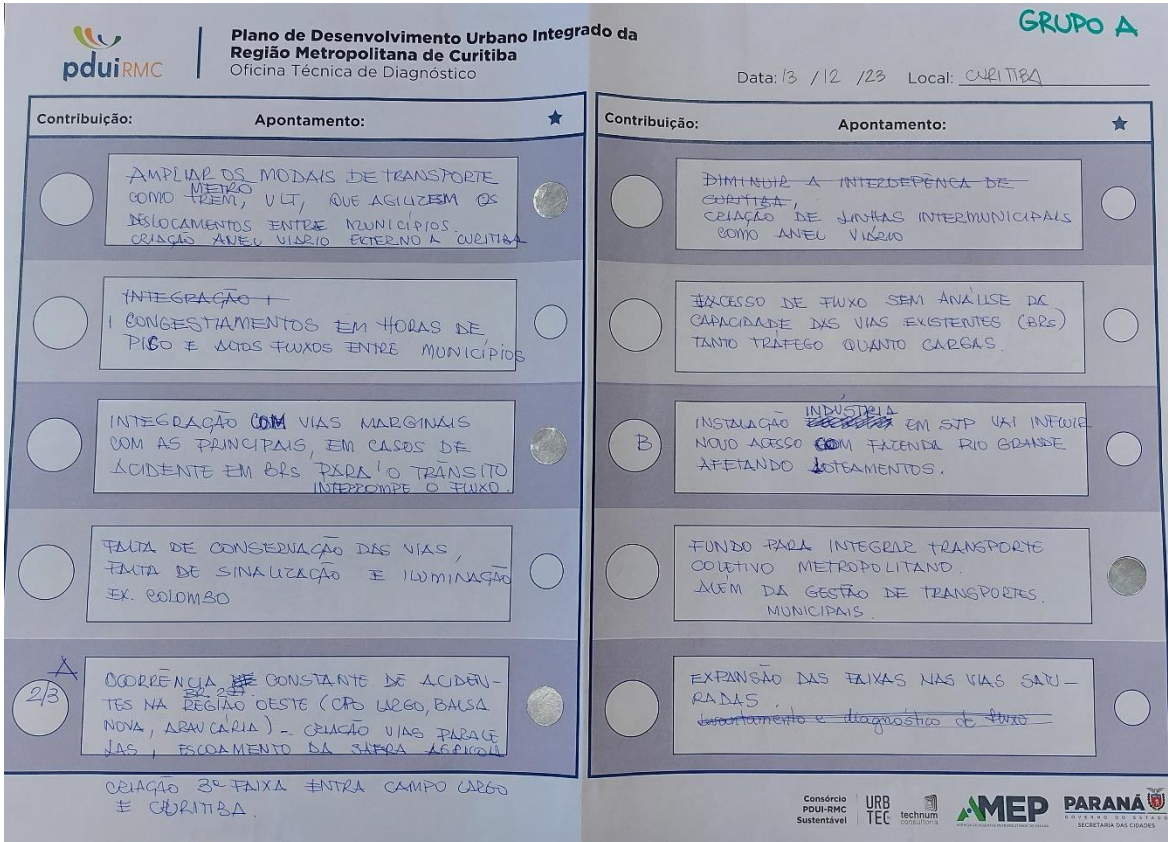 GRUPO A
pduiRMC
Plano de Desenvolvimento Urbano Integrado da
Região Metropolitana de Curitiba
Oficina Técnica de Diagnóstico
Data: 13 / 12 / 23 Local: CURITIBA
Contribuição: Apontamento:
AMPLIAR OS MODAIS DE TRANSPORTE
METRO
COMO TREM, VLT, QUE AGILIZEM OS
DESLOCAMENTOS ENTRE MUNICÍPIOS.
CRIAÇÃO ANEL VIÁRIO EXTERNO A CURITIBA
INTEGRAÇÃO
CONGESTIAMENTOS EM HORAS DE
PICO E ALTOS FLUXOS ENTRE MUNICÍPIOS
INTEGRAÇÃO COM VIAS MARGINAIS
COM AS PRINCIPAIS, EM CASOS DE
ACIDENTE EM BRs PARA O TRÂNSITO
INTERROMPE O FLUXO.
FALTA DE CONSERVAÇÃO DAS VIAS,
FALTA DE SINALIZAÇÃO E ILUMINAÇÃO
EX. COLOMBO
A
2/3
OCORRÊNCIA CONSTANTE DE ACIDEN-
TES NA REGIÃO OESTE (CPO LARGO, BALSA
NOVA, ARAUCÁRIA) - CRIAÇÃO VIAS PARALE
LAS, ESCOAMENTO DA SAFRA AGRICOLA
CRIAÇÃO 3ª FAIXA ENTRA CAMPO LARGO
E CURITIBA.
Contribuição: Apontamento:
DIMINUIR A INTERDEPÊNCA DE
CURITIBA,
CRIAÇÃO DE LINHAS INTERMUNICIPAIS
COMO ANEL VIÁRIO
EXCESSO DE FLUXO SEM ANÁLISE DA
CAPACIDADE DAS VIAS EXISTENTES (BRs)
TANTO TRÁFEGO QUANTO CARGAS.
B
INDÚSTRIA
INSTALAÇÃO EM SJP VAI INFLUIR
NOVO ACESSO COM FAZENDA RIO GRANDE
AFETANDO LOTEAMENTOS.
FUNDO PARA INTEGRAR TRANSPORTE
COLETIVO METROPOLITANO.
ALÉM DA GESTÃO DE TRANSPORTES.
MUNICIPAIS
EXPANSÃO DAS FAIXAS NAS VIAS SATU-
RADAS.
levantamento e diagnóstico de fluxo
Consórcio
PDUI-RMC
Sustentável
URB
TEC
technum
consultoria
AMEP
PARANÁ
GOVERNO DO ESTADO
SECRETARIA DAS CIDADES